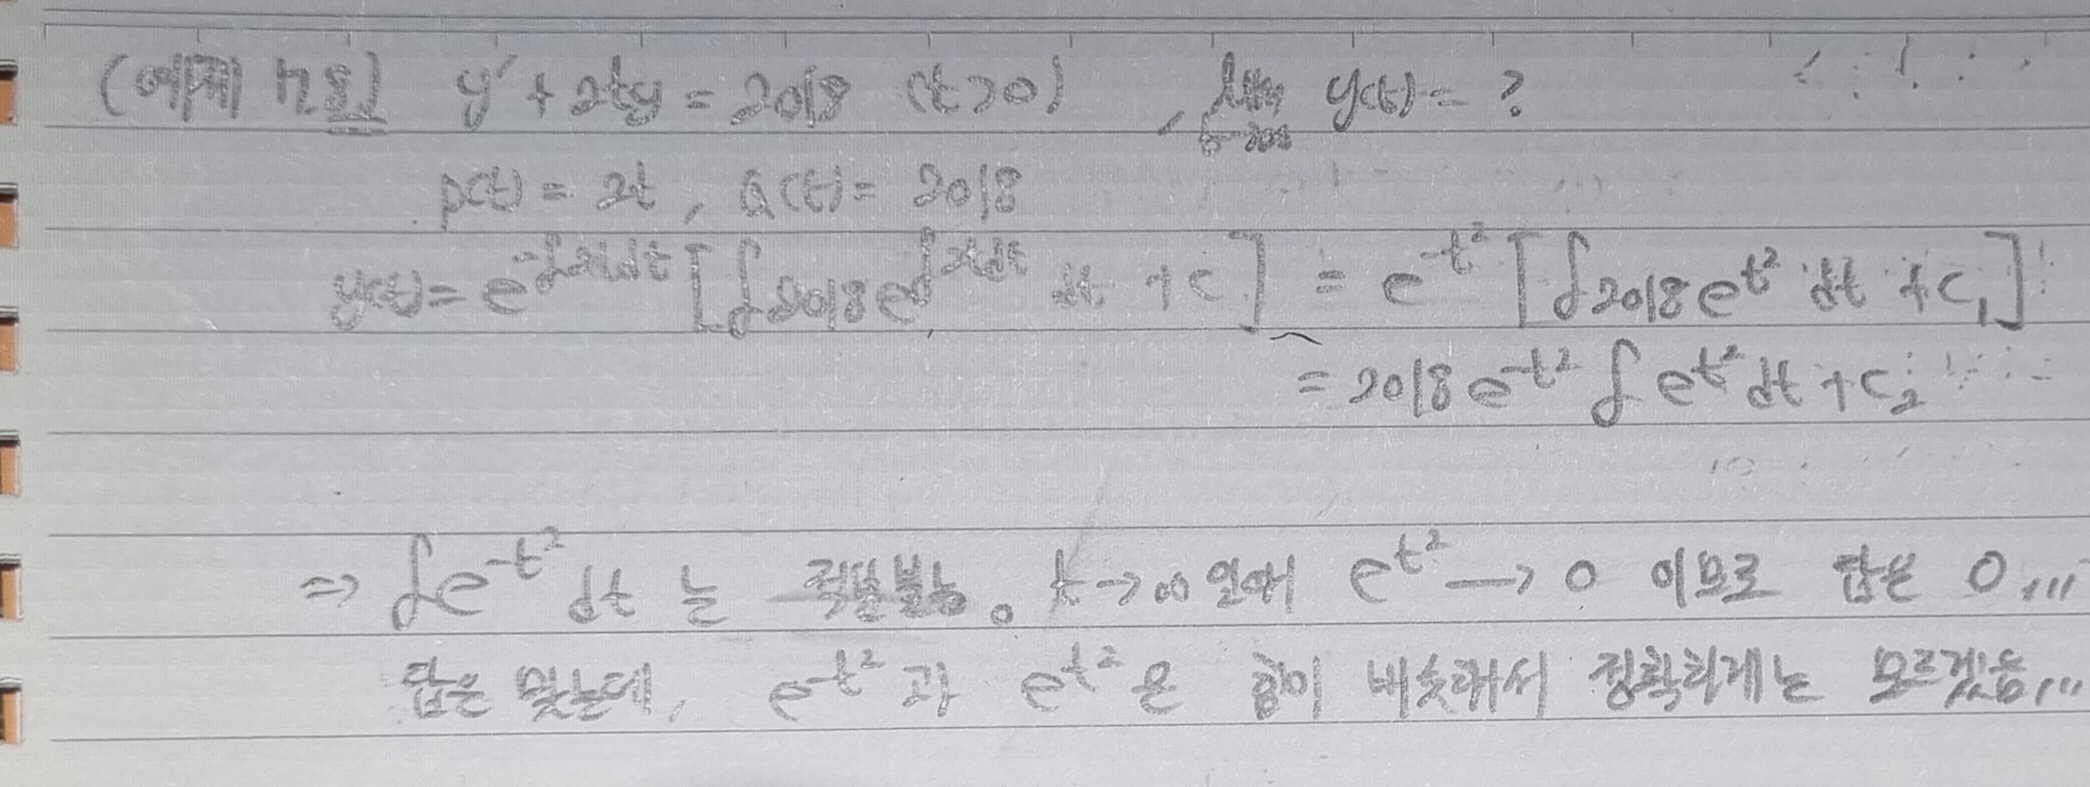 (예제 7.8) y' + 2ty = 2018 (t>0), lim t→∞ y(t) = ?
p(t) = 2t, Q(t) = 2018
y(t) = e^{-∫2tdt} [∫2018e^{∫2tdt} dt + c] = e^{-t²} [∫2018e^{t²} dt + c₁]
= 2018e^{-t²} ∫e^{t²} dt + c₂
⇒ ∫e^{-t²} dt 는 적분불능。 t→∞ 일때 e^{t²} → 0 이므로 답은 0...
답은 맞는데, e^{-t²} 과 e^{t²} 은 힘이 비슷해서 정확하게는 모르겠음...